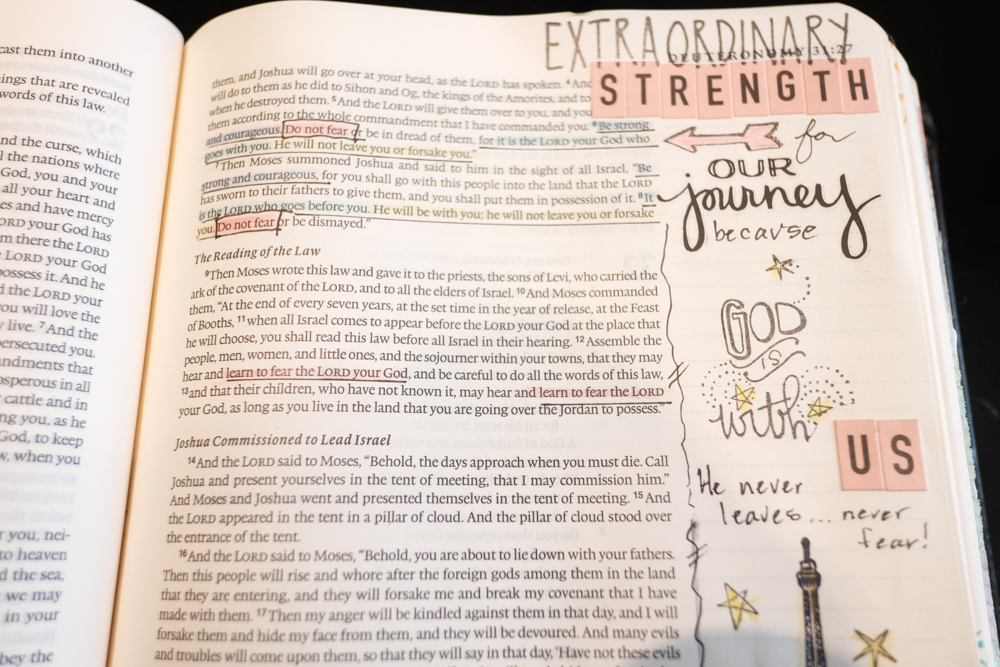 cast them into another
ings that are revealed
words of this law.
nd the curse, which
l the nations where
God, you and your
all your heart and
es and have mercy
ORD your God has
m there the LORD
the LORD your God
ossess it. And he
d the LORD your
ou will love the
y live. 7 And the
ersecuted you.
ndments that
osperous in all
cattle and in
ng you, as he
God, to keep
w, when you
r you, nei-
to heaven
d the sea,
we may
in your
bey the
DEUTERONOMY 31:27
them, and Joshua will go over at your head, as the LORD has spoken. 4 And
will do to them as he did to Sihon and Og, the kings of the Amorites, and to
when he destroyed them. 5 And the LORD will give them over to you, and you
them according to the whole commandment that I have commanded you. 6 Be strong
and courageous. Do not fear or be in dread of them, for it is the LORD your God who
goes with you. He will not leave you or forsake you."
7 Then Moses summoned Joshua and said to him in the sight of all Israel, "Be
strong and courageous, for you shall go with this people into the land that the LORD
has sworn to their fathers to give them, and you shall put them in possession of it. 8 It
is the LORD who goes before you. He will be with you; he will not leave you or forsake
you. Do not fear or be dismayed."
The Reading of the Law
9 Then Moses wrote this law and gave it to the priests, the sons of Levi, who carried the
ark of the covenant of the LORD, and to all the elders of Israel. 10 And Moses commanded
them, "At the end of every seven years, at the set time in the year of release, at the Feast
of Booths, 11 when all Israel comes to appear before the LORD your God at the place that
he will choose, you shall read this law before all Israel in their hearing. 12 Assemble the
people, men, women, and little ones, and the sojourner within your towns, that they may
hear and learn to fear the LORD your God, and be careful to do all the words of this law,
13 and that their children, who have not known it, may hear and learn to fear the LORD
your God, as long as you live in the land that you are going over the Jordan to possess."
Joshua Commissioned to Lead Israel
14 And the LORD said to Moses, "Behold, the days approach when you must die. Call
Joshua and present yourselves in the tent of meeting, that I may commission him."
And Moses and Joshua went and presented themselves in the tent of meeting. 15 And
the LORD appeared in the tent in a pillar of cloud. And the pillar of cloud stood over
the entrance of the tent.
16 And the LORD said to Moses, "Behold, you are about to lie down with your fathers.
Then this people will rise and whore after the foreign gods among them in the land
that they are entering, and they will forsake me and break my covenant that I have
made with them. 17 Then my anger will be kindled against them in that day, and I will
forsake them and hide my face from them, and they will be devoured. And many evils
and troubles will come upon them, so that they will say in that day, 'Have not these evils
EXTRAORDINARY
STRENGTH
for
OUR
journey
because
GOD
IS
with
US
He never
leaves... never
fear!